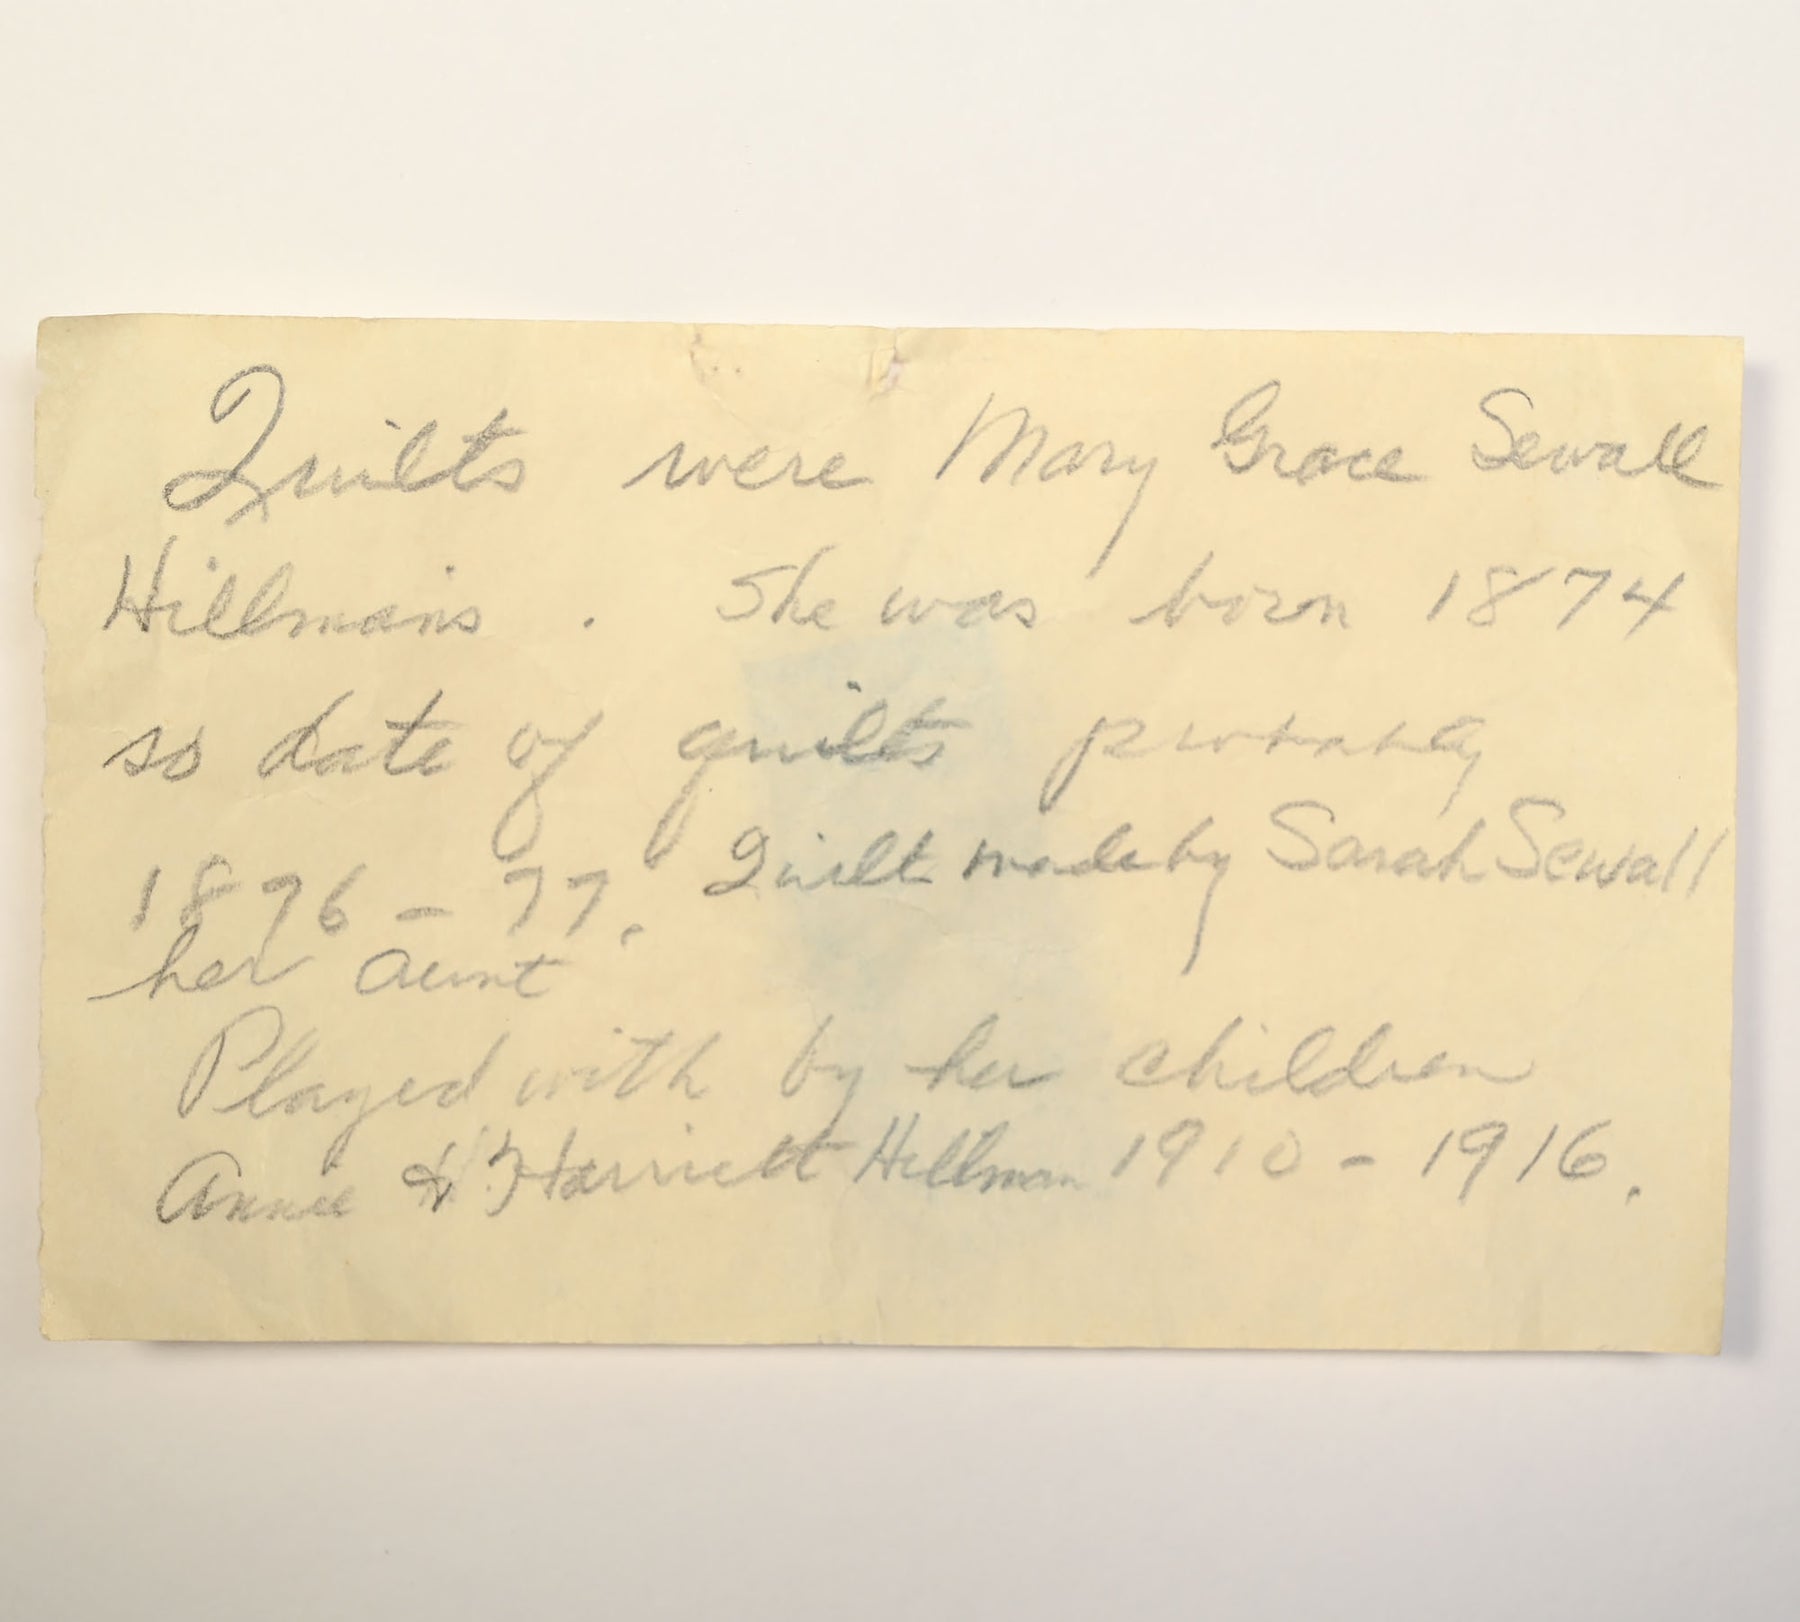 Quilts were Mary Grace Sewall
Hillmans. She was born 1874
so date of quilts probably
1876 - 77. Quilt made by Sarah Sewall
her aunt
Played with by her children
Annie & Harriett Hillman 1910 - 1916.